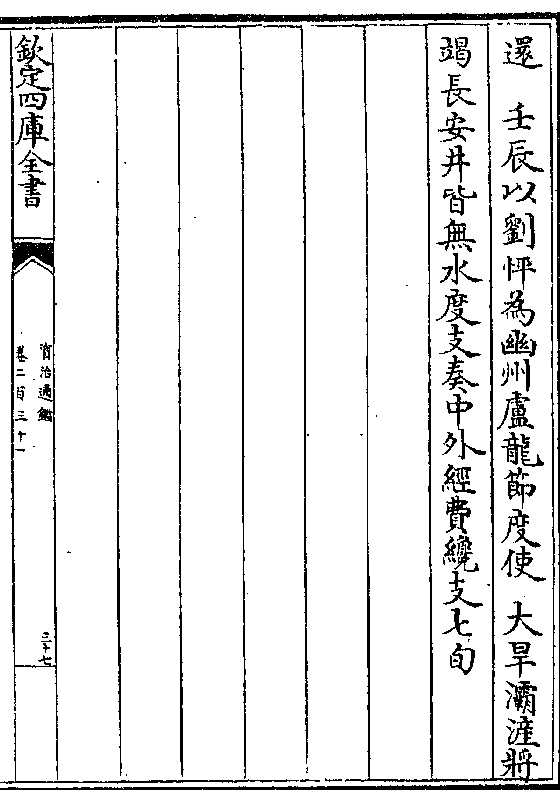 還　壬辰以劉怦為幽州盧龍節度使　大旱灞滻將
竭長安井皆無水度支奏中外經費纔支七旬
欽定四庫全書
資治通鑑
卷二百三十一
三十七